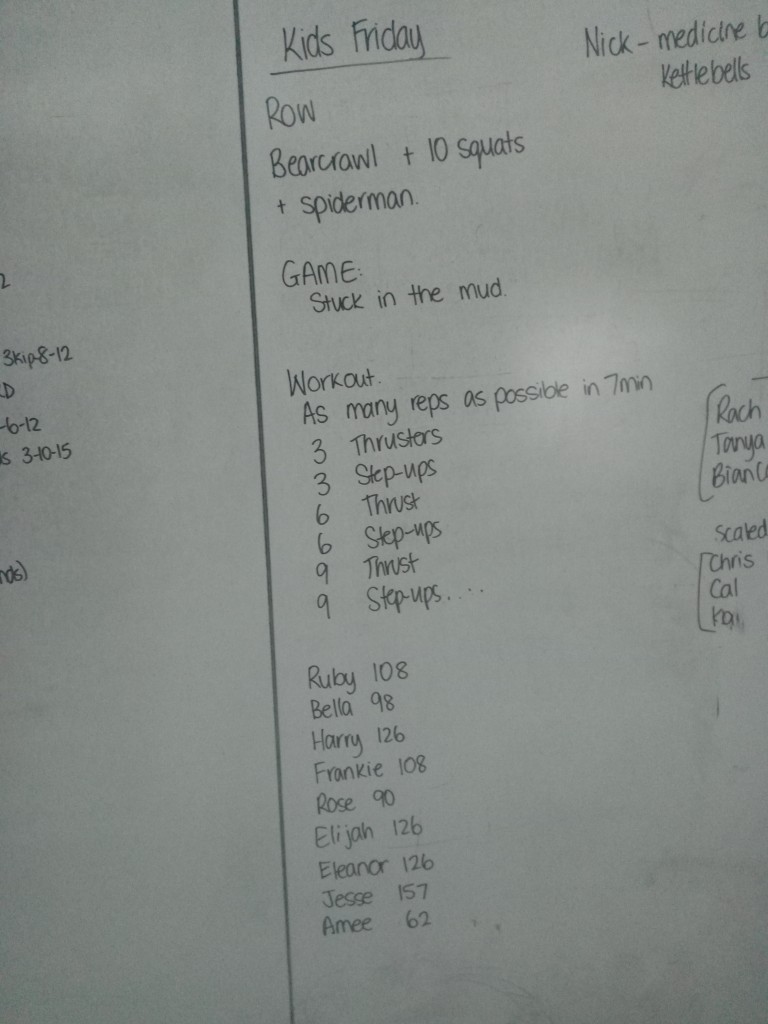 Kids Friday
Row
Bearcrawl + 10 squats
+ spiderman.
GAME:
Stuck in the mud.
Workout.
As many reps as possible in 7min
3 Thrusters
3 Step-ups
6 Thrust
6 Step-ups
9 Thrust
9 Step-ups....
Ruby 108
Bella 98
Harry 126
Frankie 108
Rose 90
Elijah 126
Eleanor 126
Jesse 157
Amee 62
Nick - medicine b
Kettlebells
Rach
Tanya
Bianc
scaled
Chris
Cal
2
3kip-8-12
D
-6-12
s 3-10-15
nds)